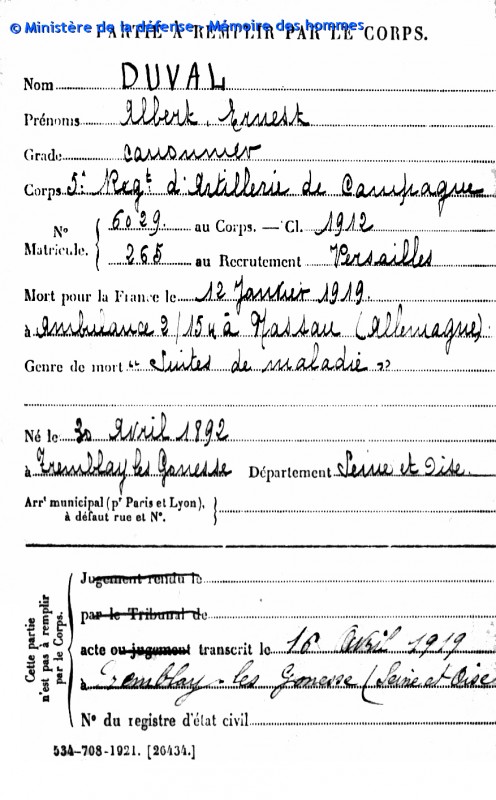 © Ministère de la défense - Mémoire des hommes
PARTIE À REMPLIR PAR LE CORPS.
Nom DUVAL
Prénoms Albert, Ernest
Grade canonnier
Corps 5e Regt d'Artillerie de Campagne
N° Matricule. { 6029. au Corps. — Cl. 1912
265 au Recrutement Versailles
Mort pour la France le 12 Janvier 1919.
à Ambulance 2/154 à Nassau (Allemagne)
Genre de mort "Suites de maladie"
Né le 30 Avril 1892
à Tremblay les Gonesse Département Seine et Oise.
Arrt municipal (pr Paris et Lyon),
à défaut rue et N°. }
Cette partie n'est pas à remplir par le Corps. {
Jugement rendu le
par le Tribunal de
acte ou jugement transcrit le 16 Avril 1919
à Tremblay-les Gonesse (Seine et Oise
N° du registre d'état civil
534-708-1921. [26434.]